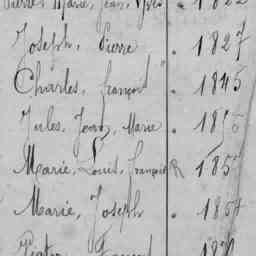 Pierre, Marie, Jean, Yves " 1822
Joseph, Pierre " 1827
Charles, françois " 1845
Jules, Jean, Marie "
Marie, Louis, François 185
Marie, Joseph " 1857